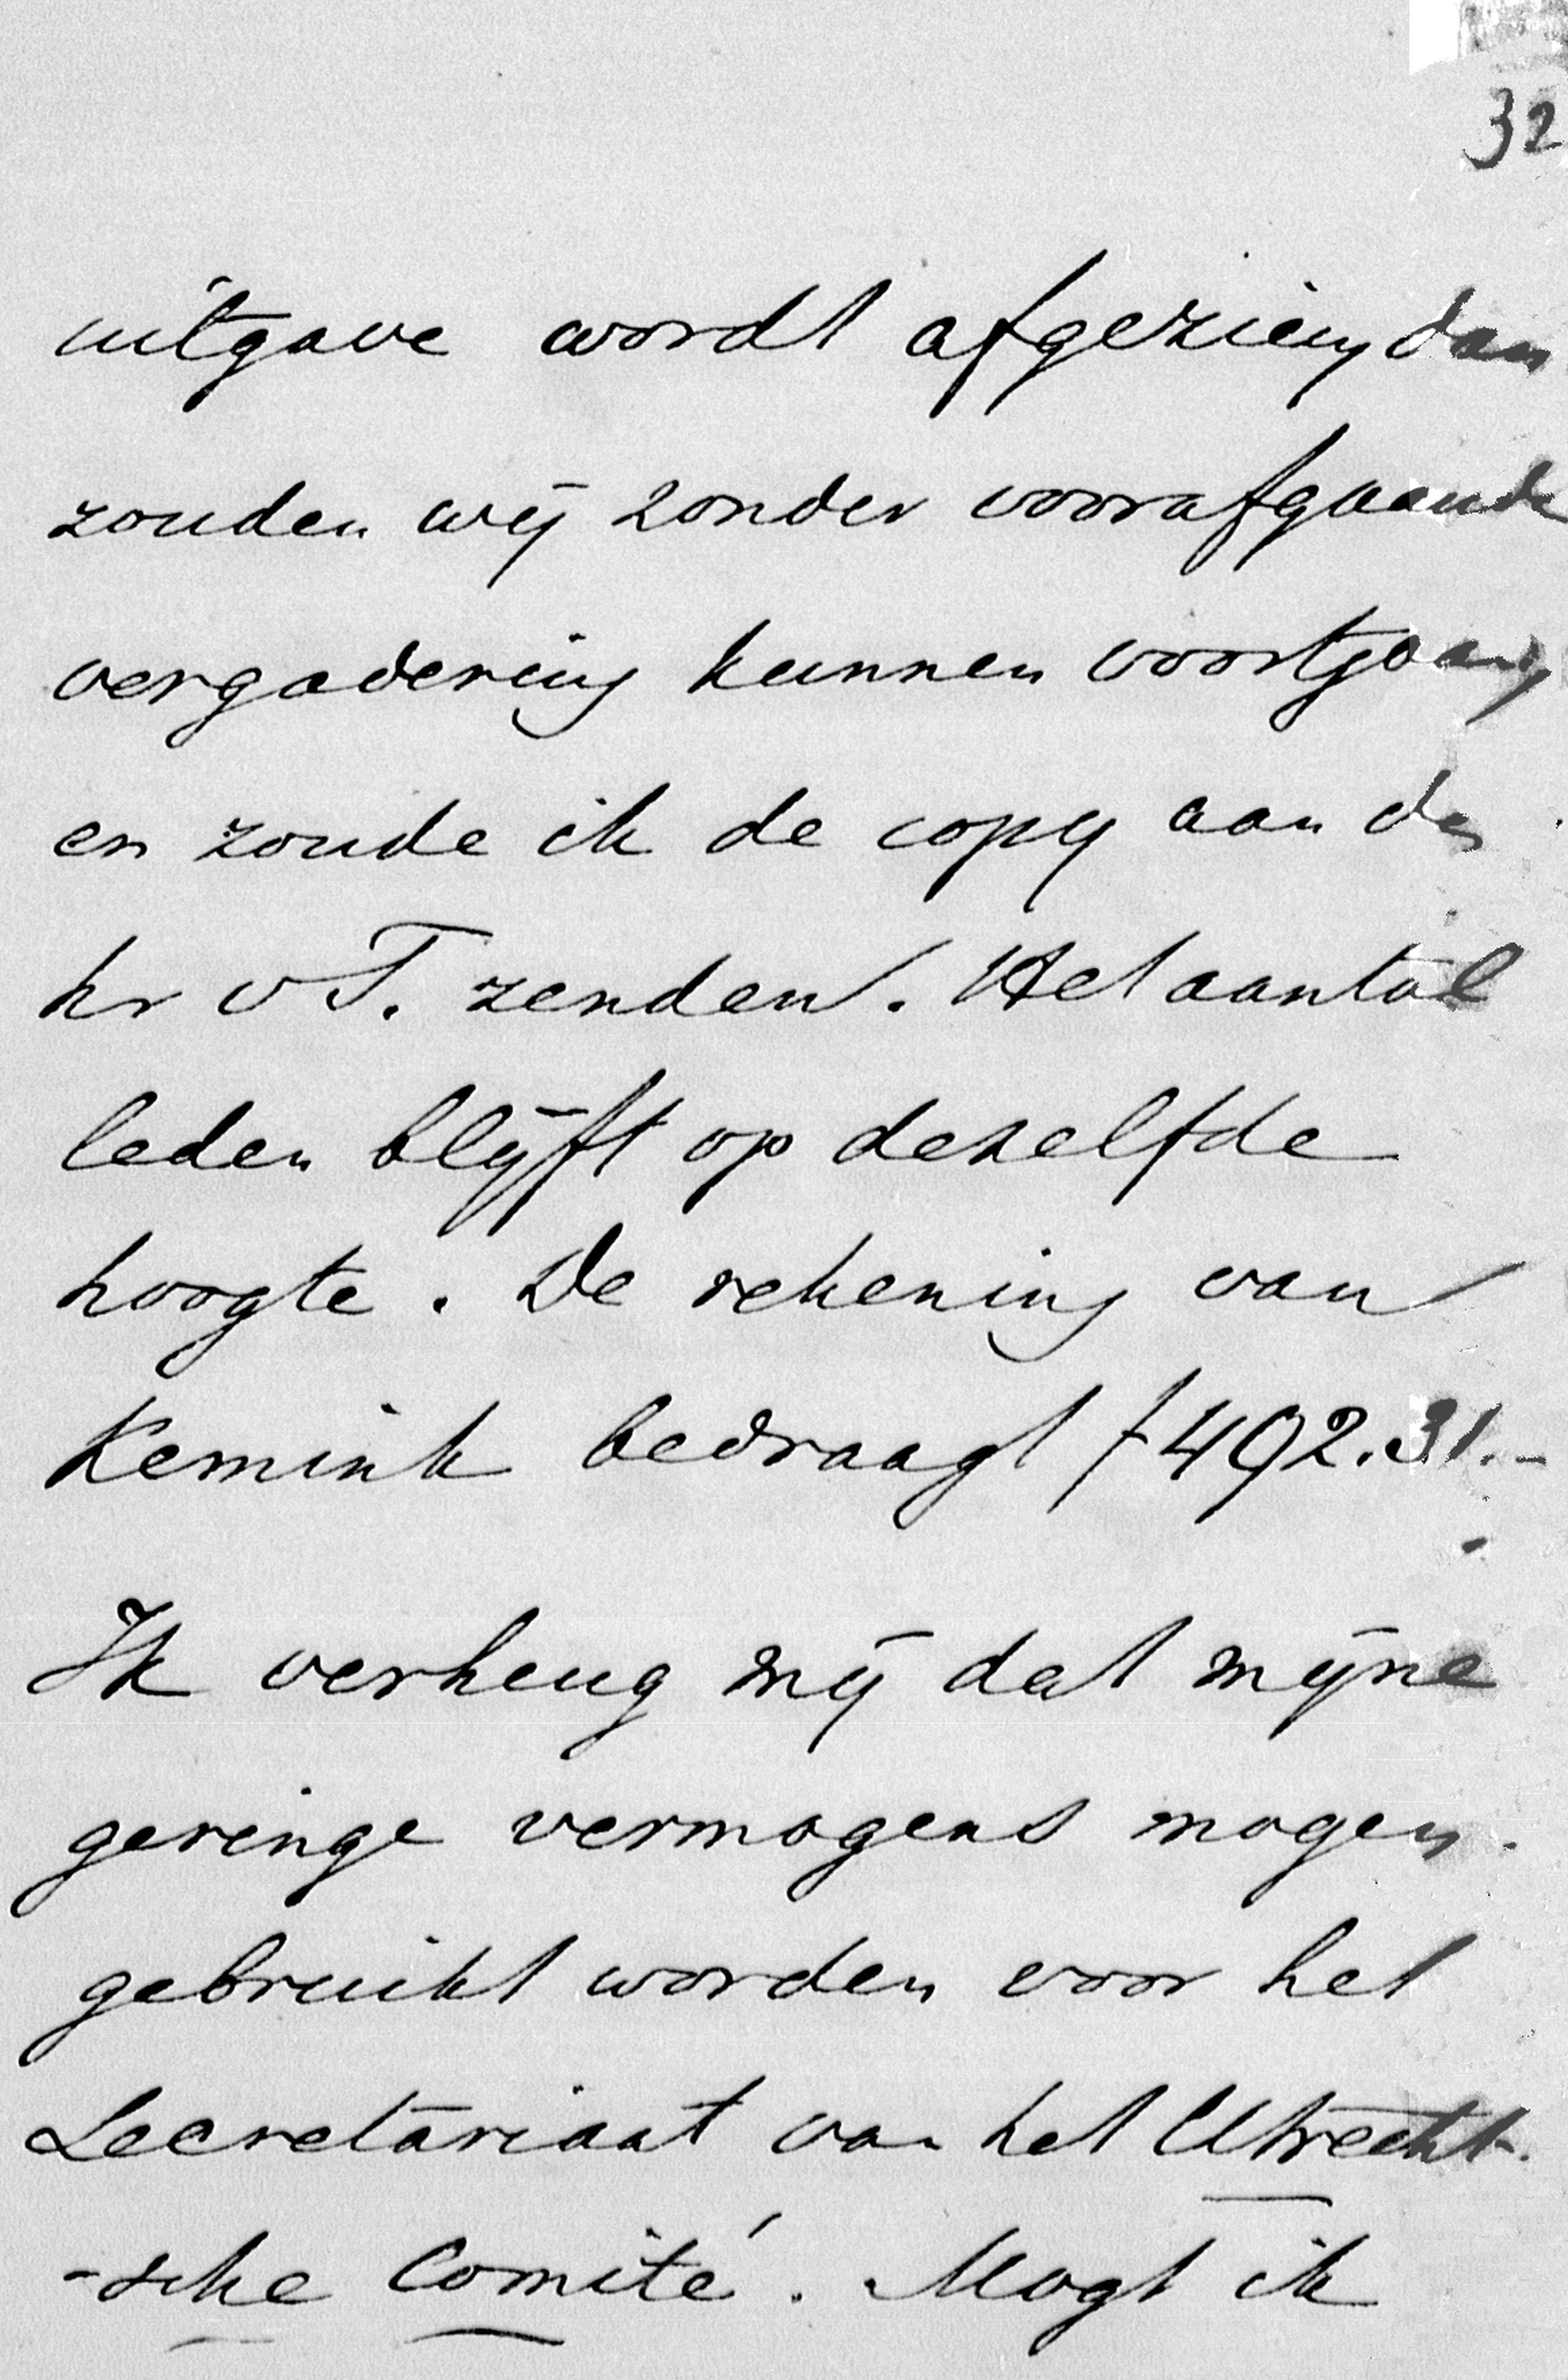 32
uitgave wordt afgezien, dan
zouden wij zonder voorafgaande
vergadering kunnen voortgaan,
en zoude ik de copy aan den
hr v T. zenden. Het aantal
leden blijft op dezelfde
hoogte. De rekening van
Kemink bedraagt f 492.31.-
Ik verheug mij dat mijne
geringe vermogens mogen
gebruikt worden voor het
Secretariaat van het Utrecht-
-sche Comité. Mogt ik